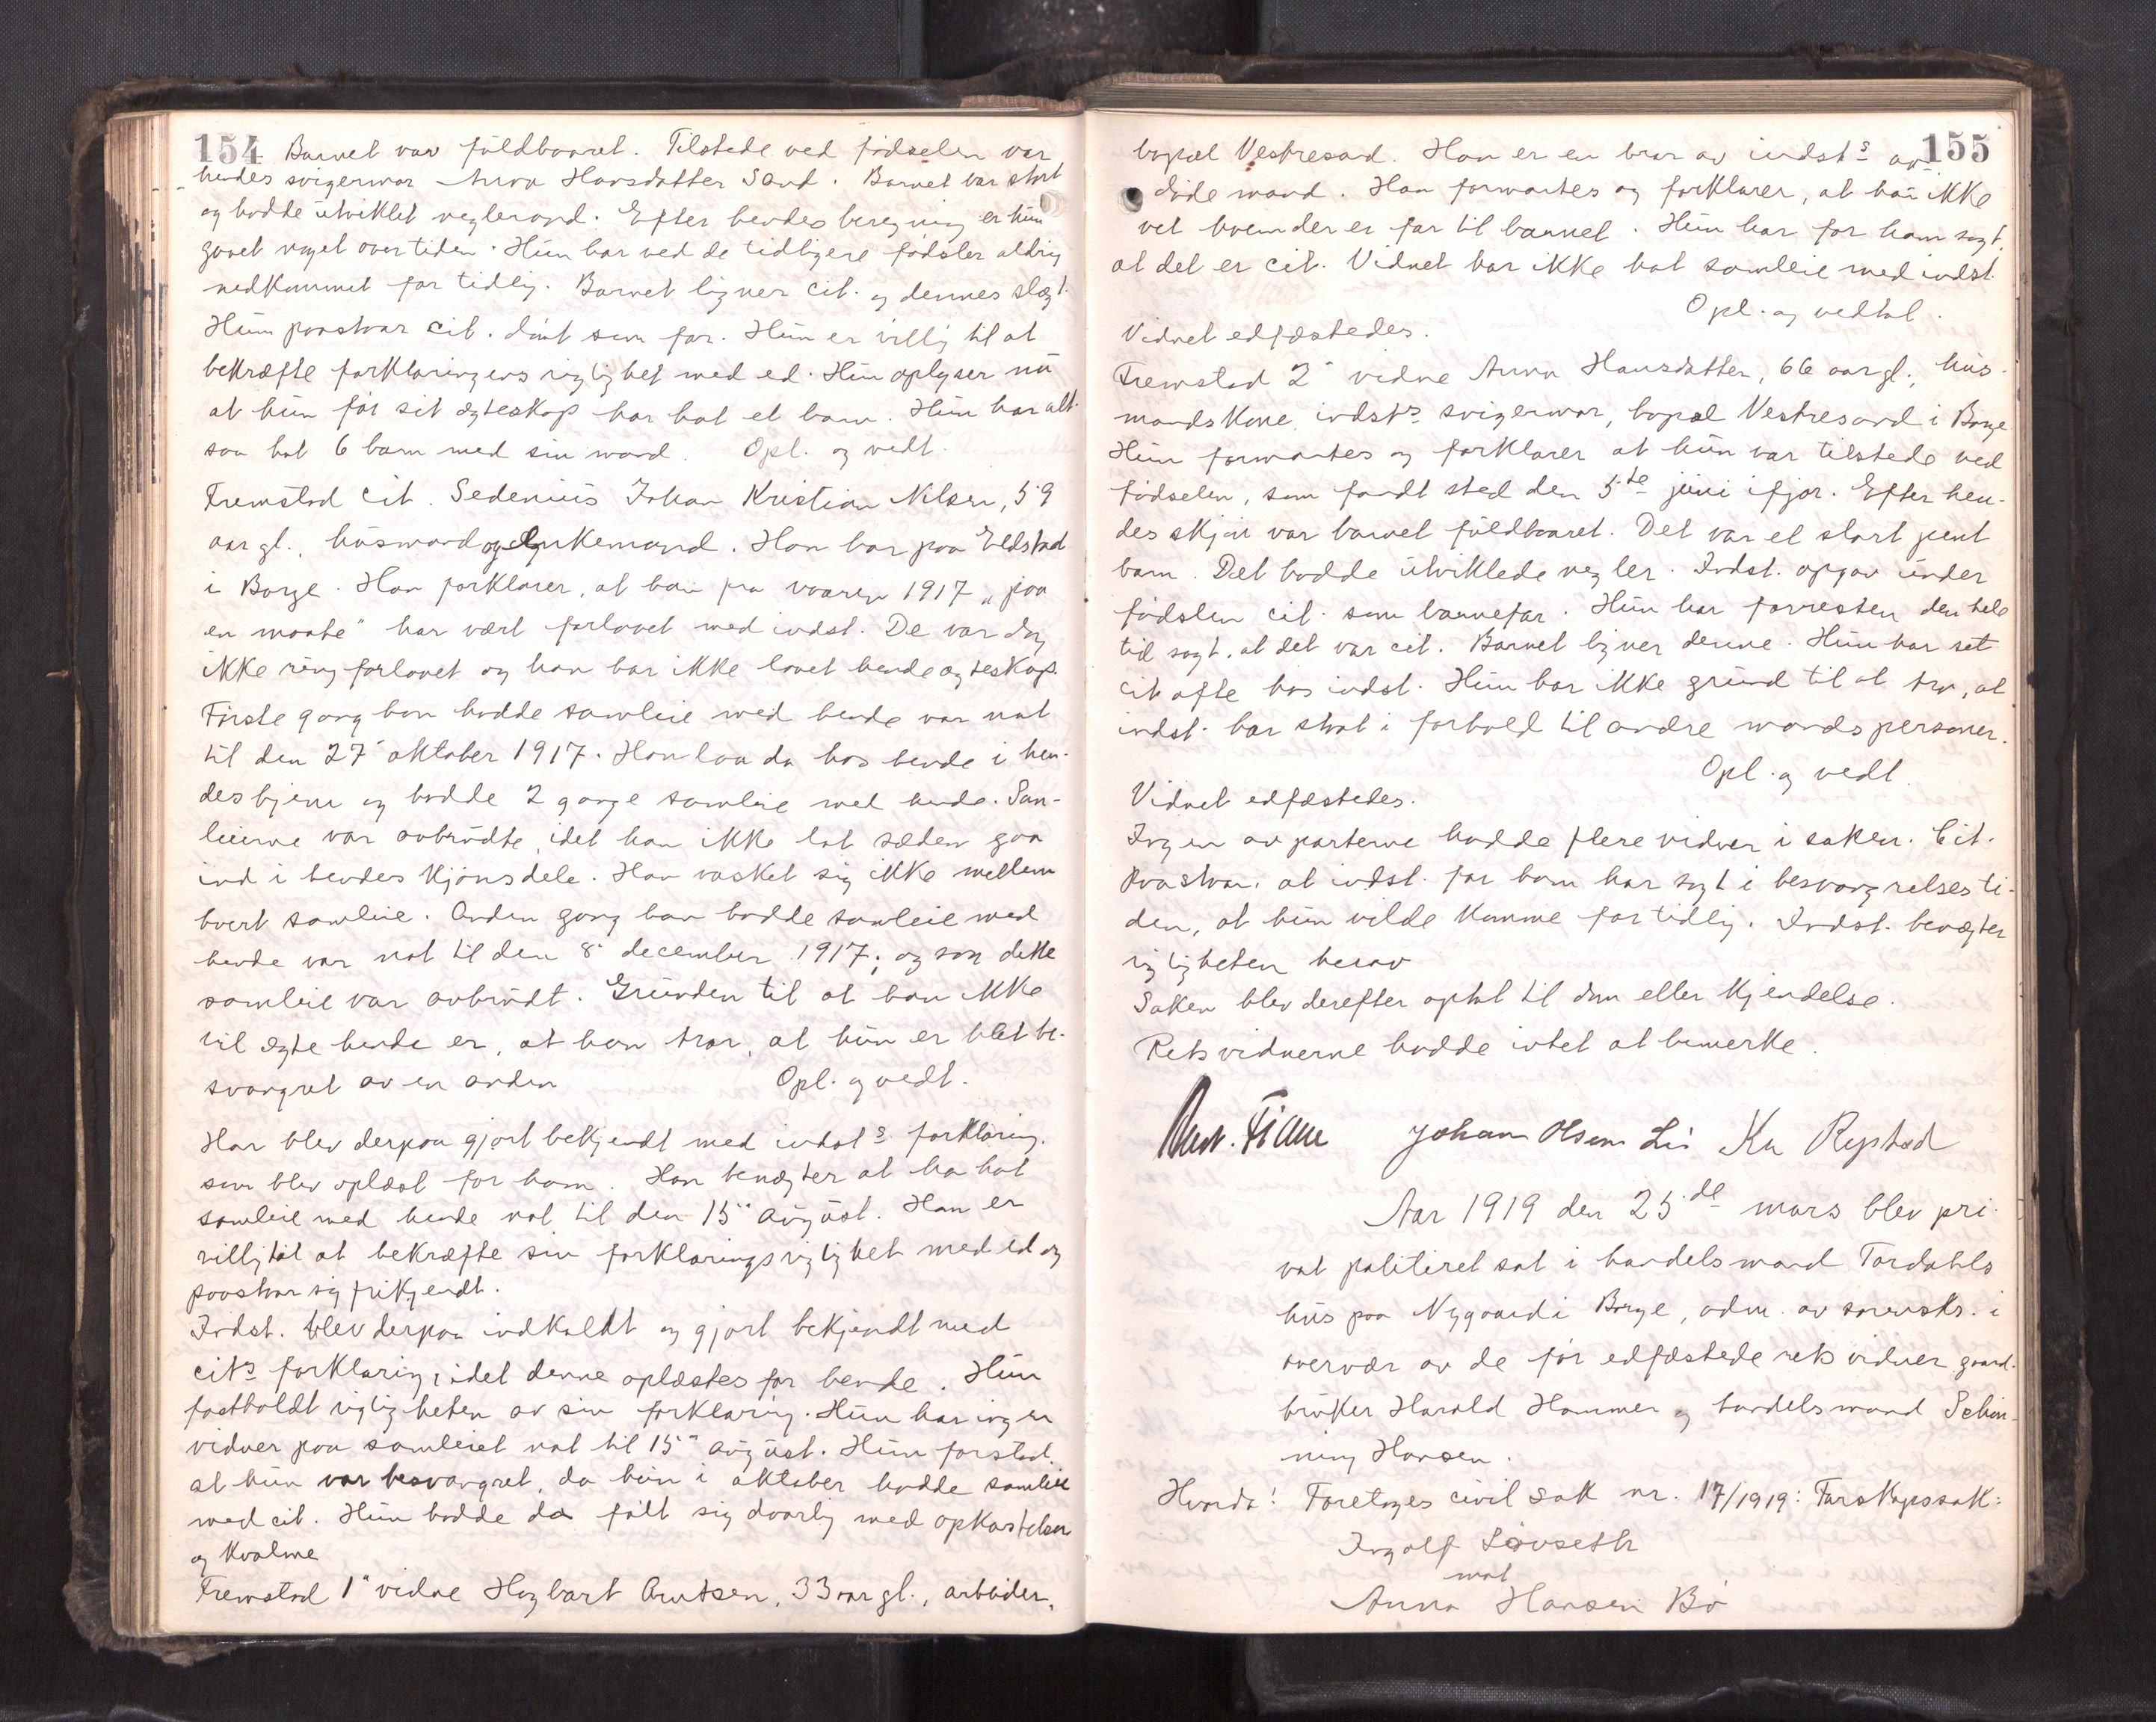 154 Barnet var fuldbaaret. Tilstede ved fødselen var
hendes svigermor Anna Hansdatter Sand. Barnet var stort
og hadde utviklet neglerand. Efter hendes beregning er hun
gaaet noget over tiden. Hun har ved de tidligere fødsler aldrig
nedkommet for tidlig. Barnet ligner cit. og dennes slægt.
Hun paastaar cit. dømt som far. Hun er villig til at
bekræfte forklaringens rigtighet med ed. Hun oplyser nu
at hun før sit egteskap har hat et barn. Hun har alt-
saa hat 6 barn med sin mand. Opl. og vedt.
Fremstod cit. Sedenius Johan Kristian Nilsen, 59
aar gl., husmand og enkemand. Han bor paa Eldstad
i Borge. Han forklarer, at han fra vaaren 1917 „paa
en maate" har vært forlovet med indst. De var dog
ikke ringforlovet og han har ikke lovet hende egteskap.
Første gang han hadde samleie med hende var nat
til den 27' oktober 1917. Han laa da hos hende i hen-
des hjem og hadde 2 gange samleie med hende. Sam-
leierne var avbrudte, idet han ikke lot sæden gaa
ind i hendes kjønsdele. Han vasket sig ikke mellem
hvert samleie. Anden gang han hadde samleie med
hende var nat til den 8' december 1917; ogsaa dette
samleie var avbrudt. Grunden til at han ikke
vil egte hende er, at han tror, at hun er blet be-
svangret av en anden Opl. og vedt.
Han blev derpaa gjort bekjendt med indst's forklaring.
som blev oplæst for ham. Han benegter at ha hat
samleie med hende nat til den 15" august. Han er
villig til at bekræfte sin forklarings rigtighet med ed og
paastaar sig frikjendt.
Indst. blev derpaa indkaldt og gjort bekjendt med
cit's forklaring, idet denne oplæstes for hende. Hun
fastholdt rigtigheten av sin forklaring. Hun har ingen
vidner paa samleiet nat til 15" august. Hun forstod.
at hun var besvangret, da hun i oktober hadde samleie
med cit. Hun hadde da følt sig daarlig med opkastelser
og kvalme
Fremstod 1" vidne Hagbart Arntsen, 33 aar gl., arbeider,
155
bopæl Vestresand. Han er en bror av indst's av-
døde mand. Han formantes og forklarer, at han ikke
vet hvem der er far til barnet. Hun har for ham sagt,
at det er cit. Vidnet har ikke hat samleie med indst.
Opl. og vedtat.
Vidnet edfæstedes.
Fremstod 2" vidne Anna Hansdatter, 66 aar gl., hus-
mandskone, indst's svigermor, bopæl Vestresand i Borge
Hun formantes og forklarer at hun var tilstede ved
fødselen, som fandt sted den 5te juni ifjor. Efter hen-
des skjøn var barnet fuldbaaret. Det var et stort pent
barn. Det hadde utviklede negler. Indst. opgav under
fødslen cit. som barnefar. Hun har forresten den hele
tid sagt, at det var cit. Barnet ligner denne. Hun har set
cit ofte hos indst. Hun har ikke grund til at tro, at
indst. har staat i forhold til andre mandspersoner.
Opl. og vedt.
Vidnet edfæstedes.
Ingen av parterne hadde flere vidner i saken. Cit.
paastaar, at indst. for ham har sagt i besvangrelsesti-
den, at hun vilde komme for tidlig. Indst. benegter
rigtigheten herav
Saken blev derefter optat til dom eller kjendelse.
Retsvidnerne hadde intet at bemerke.
Johan Olsen Li Kr Rystad
Aar 1919 den 25de mars blev pri-
vat politiret sat i handelsmand Tordahls
hus paa Nygaard i Borge, adm. av sorenskr. i
overvær av de før edfæstede retsvidner gaard-
bruker Harald Hammer og handelsmand Schøn-
ning Hansen.
Hvorda! Foretages civil sak nr. 17/1919: Farskapssak:
Ingolf Løvseth
mot
Anna Hansen Bø